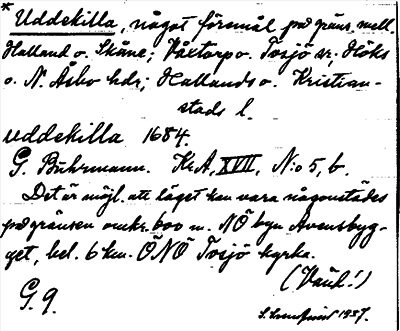 * Uddekilla, något föremål på gräns. mell.
Halland o. Skåne; Våxtorp o. Tosjö sr; Höks
o. N. Åsbo hdr; Hallands o. Kristian-
stads l.
Uddekilla 1684.
G. Buhrmann. KrA, XVII, N:o 5, b.
Det är möjl. att läget kan vara någonstädes
på gränsen omkr. 600 m. NÖ byn Avensbyg-
get, bel. 6 km. ÖNÖ Tosjö kyrka.
(Vänl.!)
G. 9.
1937.